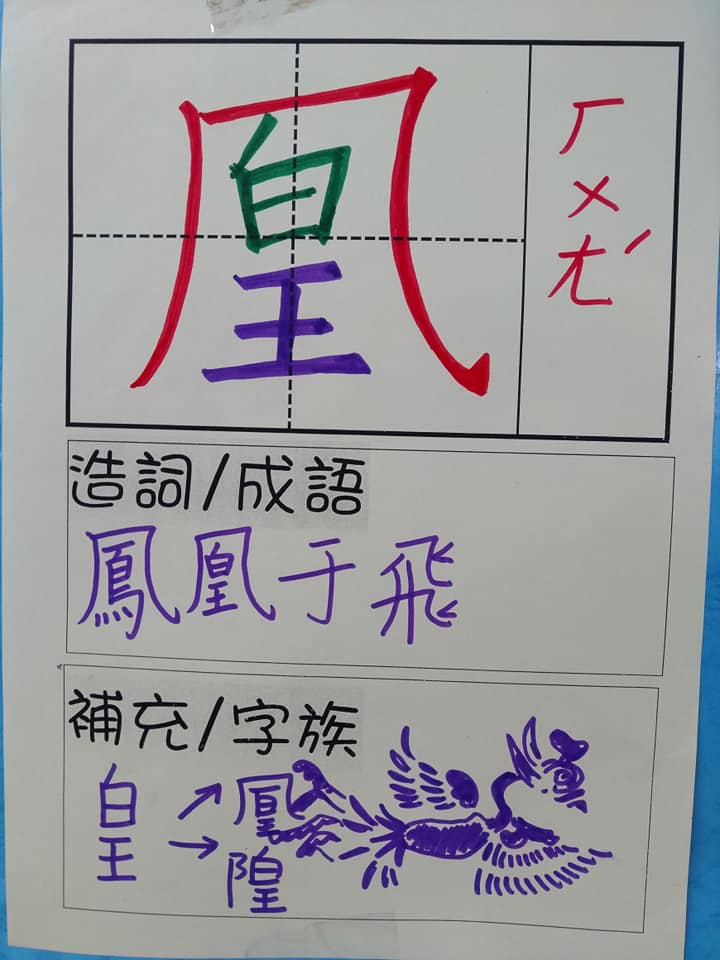 凰
ㄏㄨㄤˊ
造詞/成語
鳳凰于飛
補充/字族
皇→凰
→隍